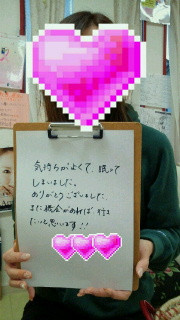 気持ちがよくて、眠って
しまいました。
ありがとうございました
また機会があれば、行き
たいと思います!!